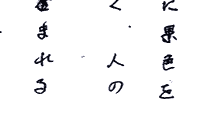 に景色を
く人の
まれる